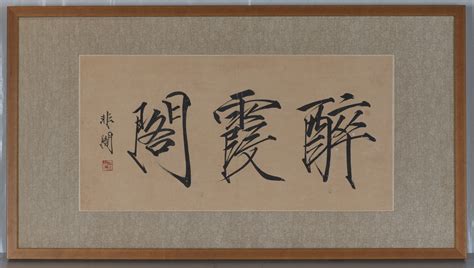 醉霞閣
非闇